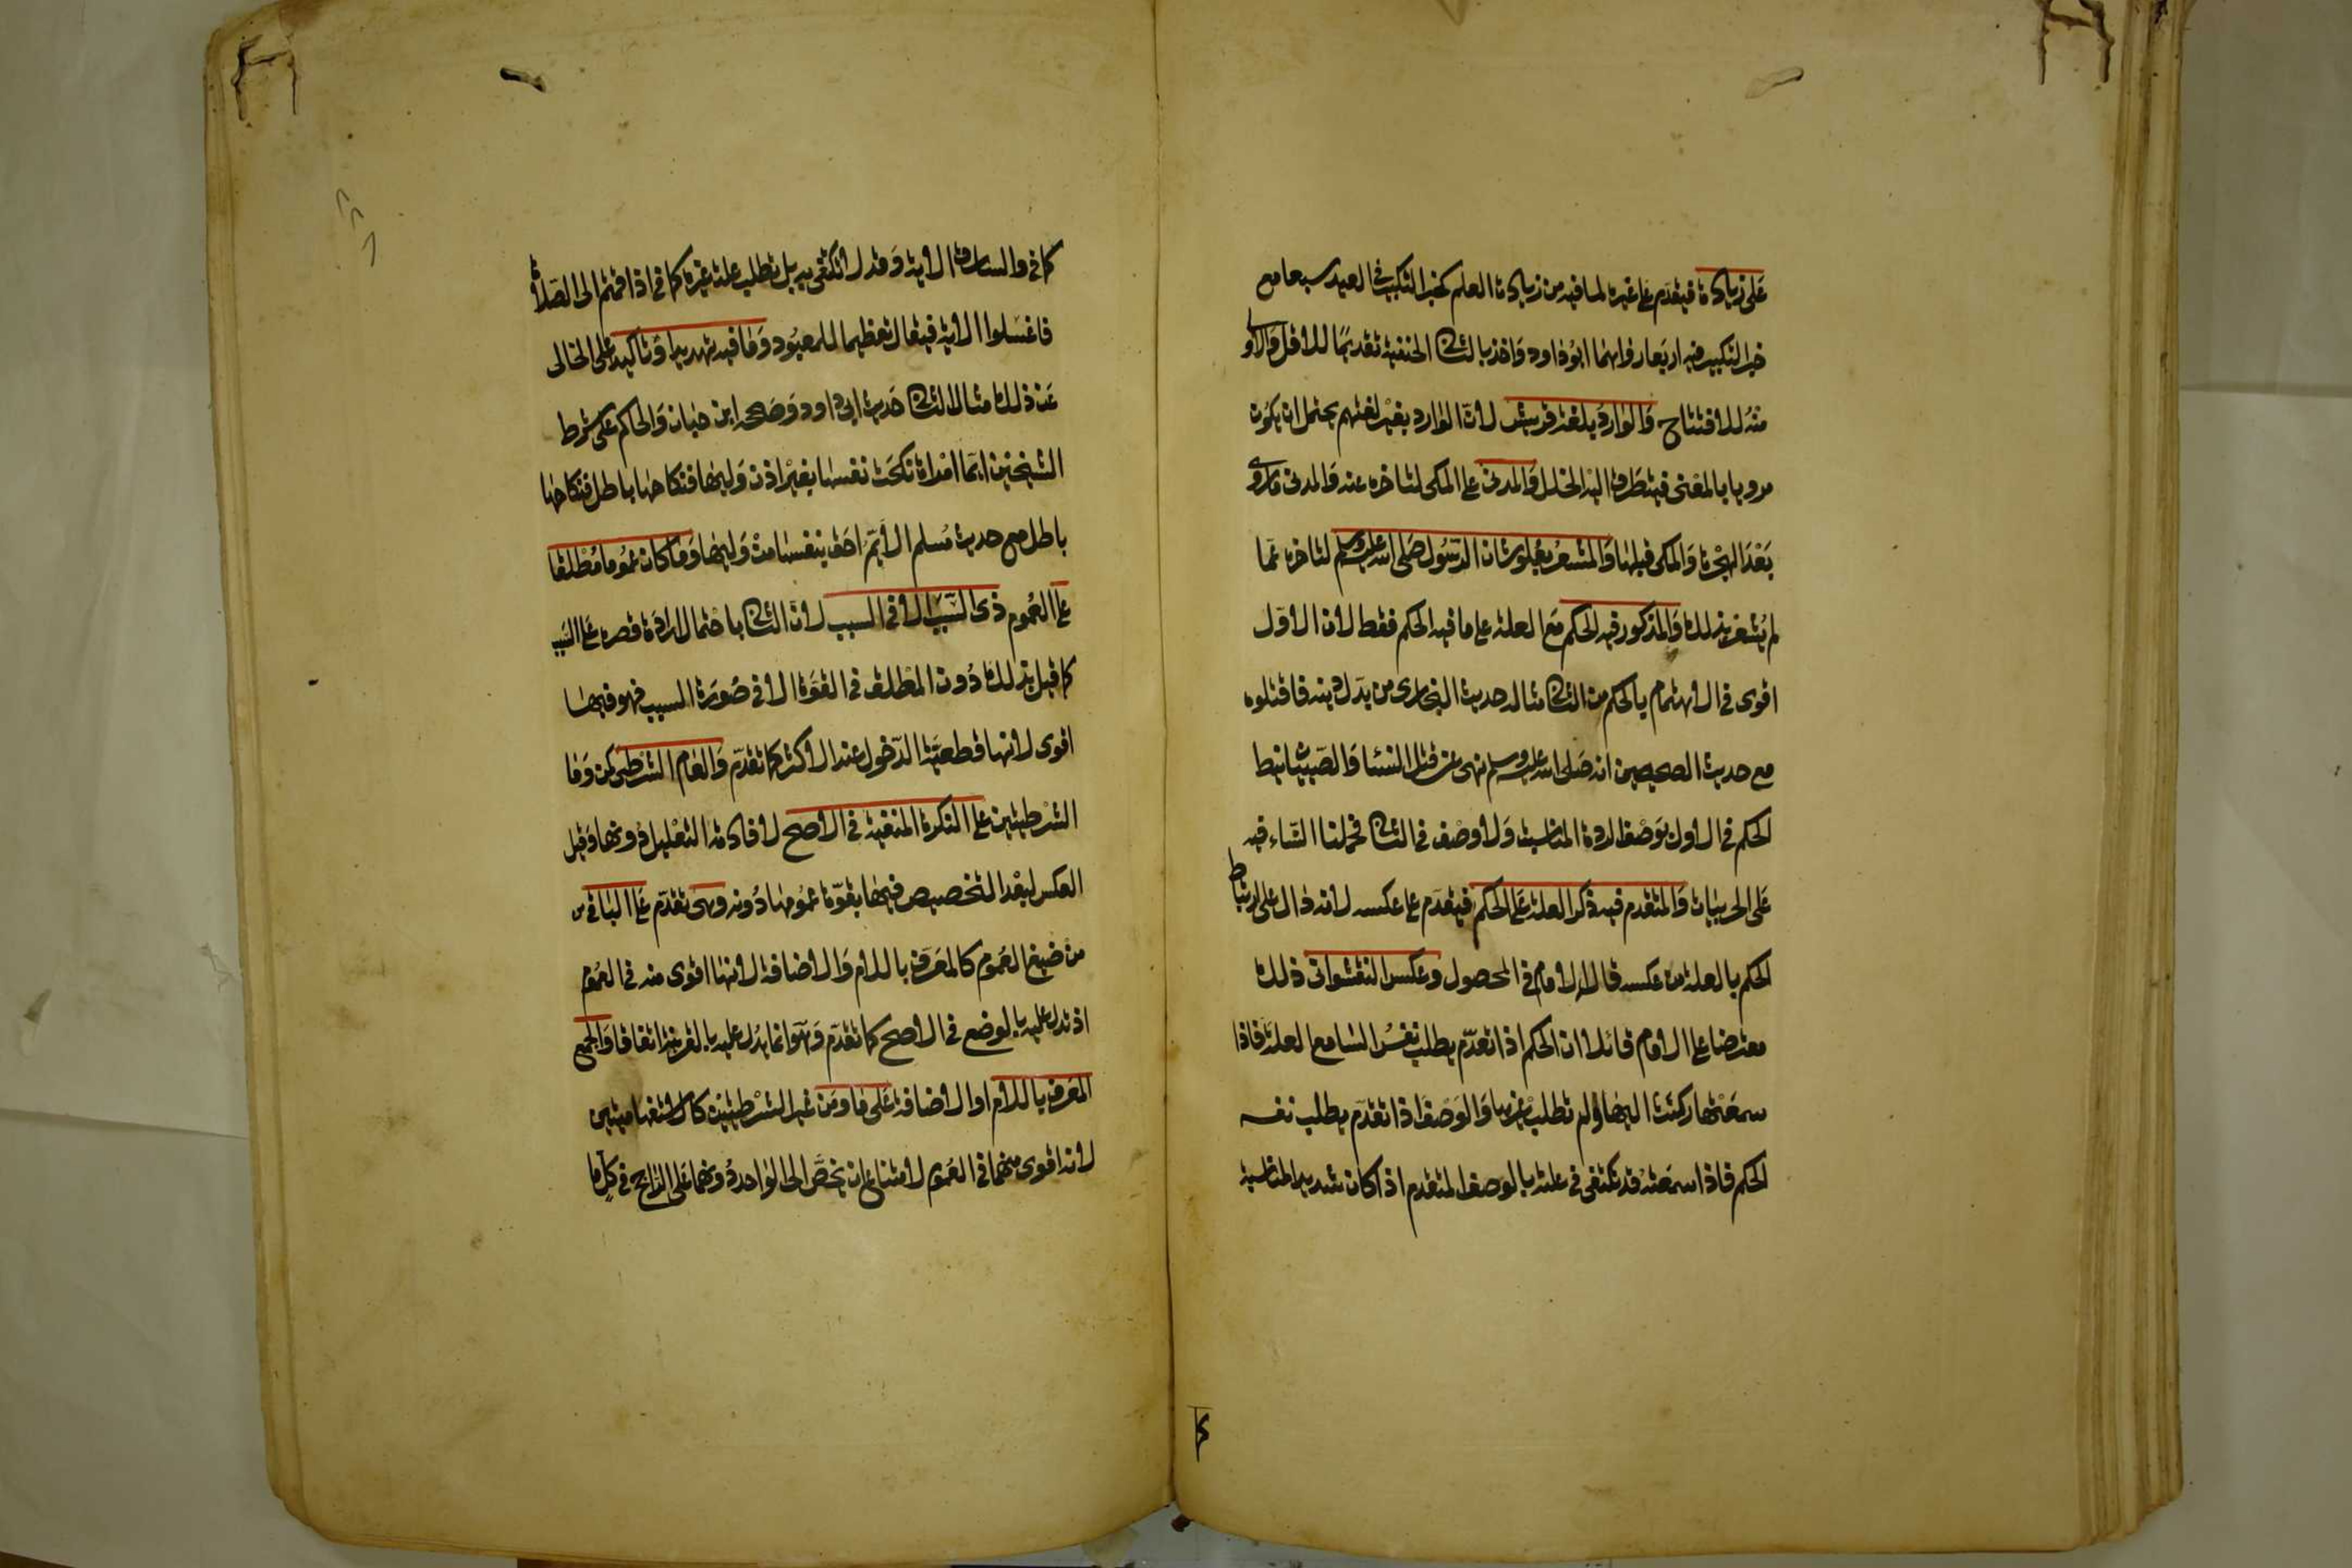 على زيادة فيقدم على غيره لما فيه من زيادة العلم كخبر التكبير في العيد سبعا مع
خبر التكبير فيه اربعا رواهما ابو داود واخذ بالثاني الحنفية تقديما للاقل والاولى
منه للافتتاح والوارد بلغة قريش لان الوارد بغير لغتهم يحتمل ان يكون
مرويا بالمعنى فيتطرق اليه الخلل والمدني على المكي لتاخره عنه والمدني ما روى
بعد الهجرة والمكي قبلها والمشعر بعلو شان الرسول صلى الله عليه وسلم لتاخره عما
لم يشعر بذلك والمذكور فيه الحكم مع العلة على ما فيه الحكم فقط لان الاول
اقوى في الاهتمام بالحكم من الثاني مثاله حديث البخاري من بدل دينه فاقتلوه
مع حديث الصحيحين انه صلى الله عليه وسلم نهى عن قتل النساء والصبيان نيط
الحكم في الاول بوصف الردة المناسبة ولا وصف في الثاني فحملنا النساء فيه
على الحربيات والمتقدم فيه ذكر العلة على الحكم فيقدم على عكسه لانه دال على ارتباط
الحكم بالعلة من عكسه قال الامام في المحصول وعكس النقشواني ذلك
معترضا على الامام قائلا ان الحكم اذا تقدم يطلب نفس السامع العلة فاذا
سمعتها ركنت اليها ولم تطلب غيرها والوصف اذا تقدم يطلب نفسه
الحكم فاذا سمعته قد تكتفي في علته بالوصف المتقدم اذا كان شديد المناسبة
كما في والسارق الاية وقد لا تكتفي به بل تطلب علة غيره كما في اذا قمتم الى الصلاة
فاغسلوا الاية فيقال تعظيما للمعبود وما فيه تهديد او تاكيد على الخالي
عن ذلك مثال الثاني حديث ابي داود وصححه ابن حبان والحاكم على شرط
الشيخين ايما امراة نكحت نفسها بغير اذن وليها فنكاحها باطل فنكاحها
باطل مع حديث مسلم الايم احق بنفسها من وليها وما كان عموما مطلقا
على العموم ذي السبب الا في السبب لان الثاني باحتمال ارادة قصره على السبب
كما قيل بذلك دون المطلق في القوة الا في صورة السبب فهو فيها
اقوى لانها قطعية الدخول عند الاكثر كما تقدم والعام الشرطي كمن وما
الشرطيتين على النكرة المنفية في الاصح لافادته التعليل دونها وقيل
العكس لبعد التخصيص فيها بقوة عمومها دونه وهي تقدم على الباقي من
من صيغ العموم كالمعرف باللام والاضافة لانها اقوى منه في العموم
اذ تدل عليه بالوضع في الاصح كما تقدم وهو انما يدل عليه بالقرينة اتفاقا والجمع
المعرف باللام او الاضافة على ما ومن غير الشرطيتين كالاستفهاميتين
لانه اقوى منهما في العموم لامتناع ان يخص الى الواحد دونهما على الراجح في كل ما